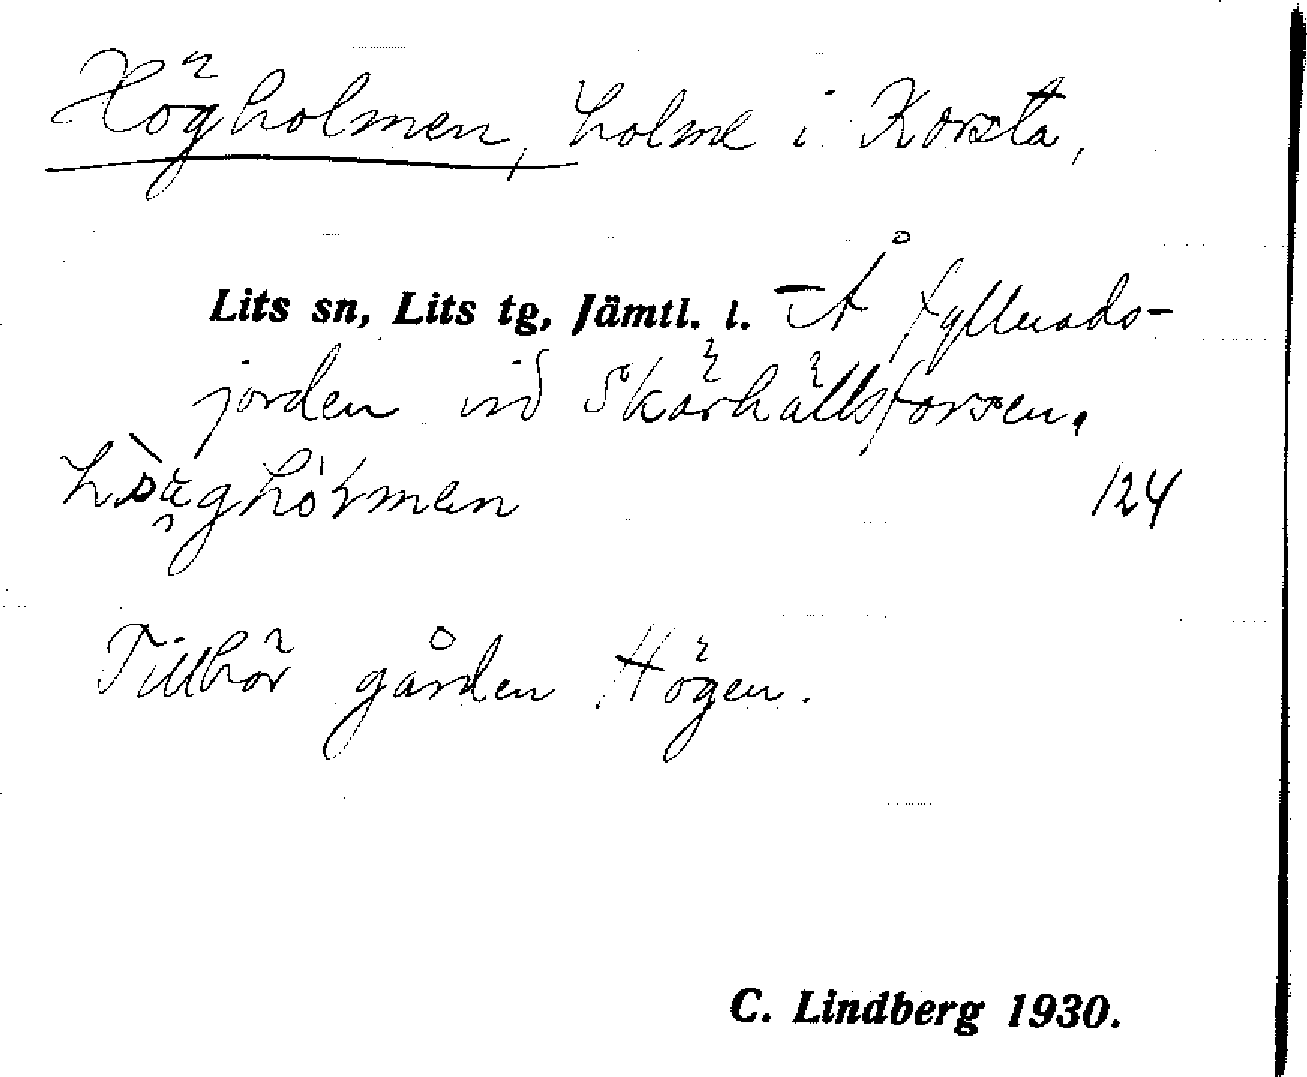 Högholmen, holme i Korsta,
Lits sn, Lits tg, Jämtl. l. Å fyllnads-
jorden vid Skärhällsforsen.
124
Tillhör gården Högen.
C. Lindberg 1930.